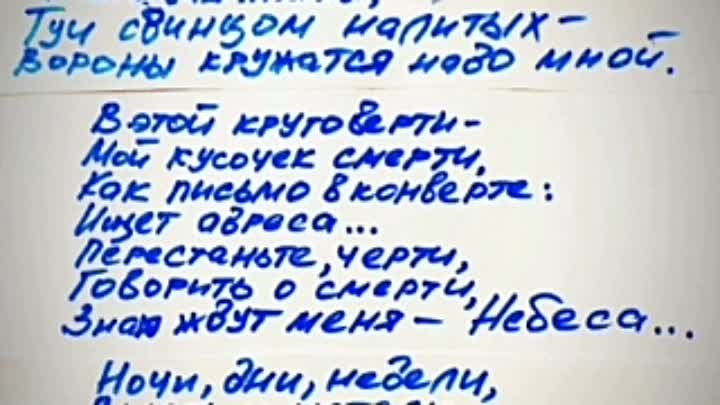 Туч свинцом налитых –
Вороны кружатся надо мной.
В этой круговерти –
Мой кусочек смерти,
Как письмо в конверте:
Ищет адреса...
Перестаньте, черти,
Говорить о смерти,
Знаю ждут меня – Небеса...
Ночи, дни, недели,